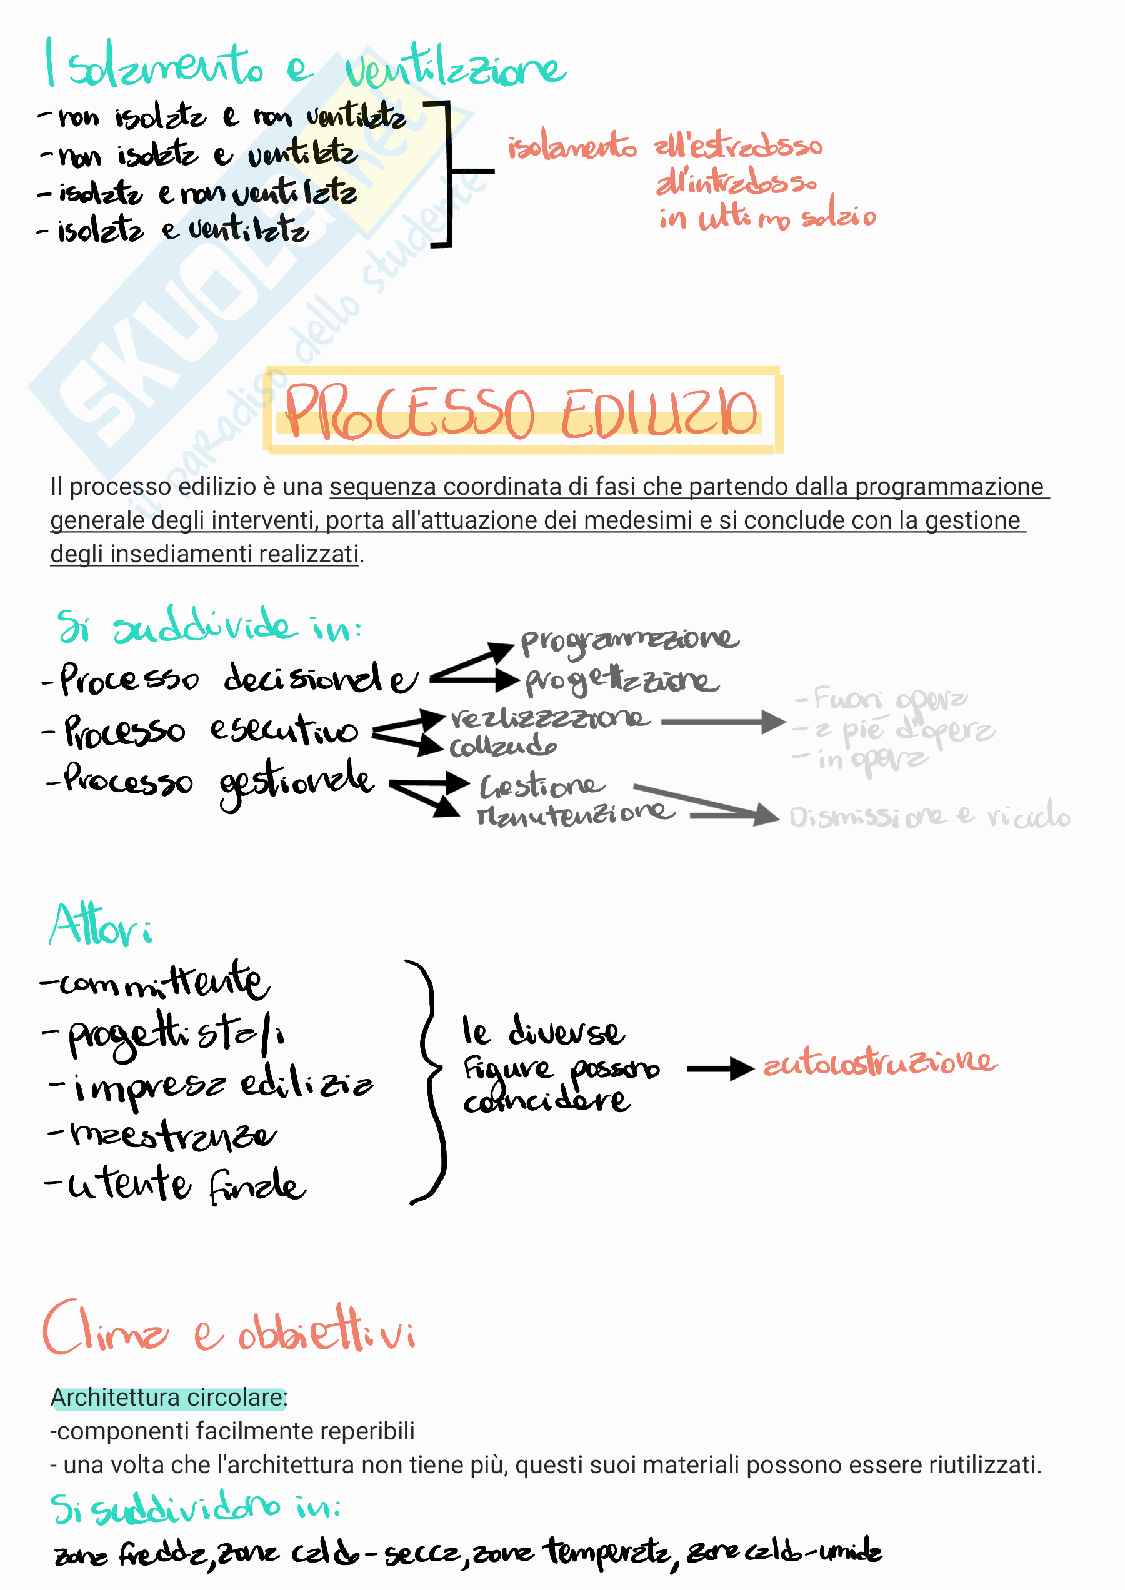 Isolamento e ventilazione
-non isolata e non ventilata
-non isolata e ventilata
-isolata e non ventilata
-isolata e ventilata
isolamento all'estradosso
all'intradosso
in ultimo solaio
SKUOLA.net
il paradiso dello studente
PROCESSO EDILIZIO
Il processo edilizio è una sequenza coordinata di fasi che partendo dalla programmazione
generale degli interventi, porta all'attuazione dei medesimi e si conclude con la gestione
degli insediamenti realizzati.
Si suddivide in:
-Processo decisionale
programmazione
progettazione
-Processo esecutivo
realizzazione
collaudo
-Fuori opera
-a piè d'opera
-in opera
-Processo gestionale
Gestione
Manutenzione
Dismissione e riciclo
Attori
-committente
-progettista/i
-impresa edilizia
-maestranze
-utente finale
le diverse
Figure possono
coincidere
autocostruzione
Clima e obbiettivi
Architettura circolare:
-componenti facilmente reperibili
- una volta che l'architettura non tiene più, questi suoi materiali possono essere riutilizzati.
Si suddividono in:
zona fredda, zona caldo-secca, zona temperata, zona caldo-umida